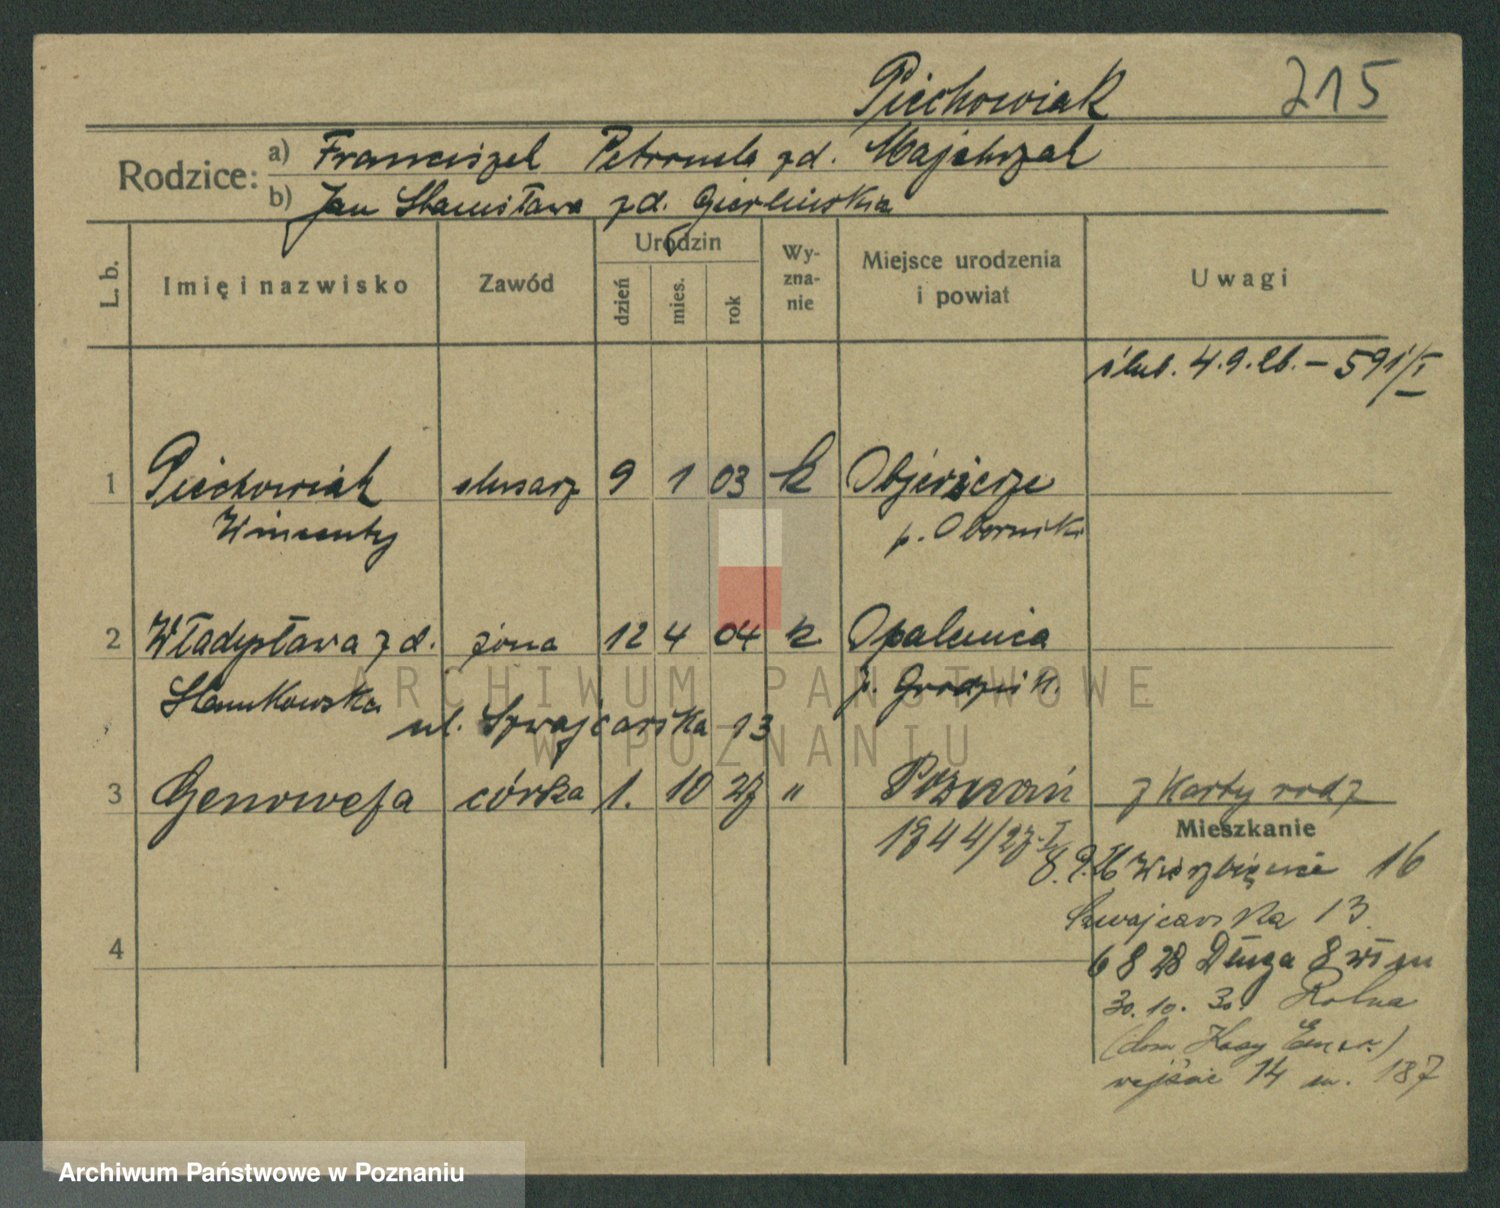 Piechowiak 215
Rodzice: a) Franciszek Petronela zd. Majchrzak
b) Jan Stanisława zd. Gierlińska
L. b. Imię i nazwisko Zawód Urodzin dzień mies. rok Wyznanie Miejsce urodzenia i powiat Uwagi
ślub. 4.9.26. – 591/I
1 Piechowiak ślusarz 9 1 03 k Objezierze
Wincenty p. Oborniki
2 Władysława zd. żona 12 4 04 k Opalenica
Stankowska p. Grodzisk.
ul. Szwajcarska 13
3 Genowefa córka 1. 10 27 " Poznań z karty rodz
Mieszkanie
1944/27-I
8.9.26 Wierzbięcice 16
Szwajcarska 13
4
6 8 28 Długa 8 m
30.10.30. Rolna
(dom Kasy)
wejście 14 m. 187
ARCHIWUM PAŃSTWOWE
W POZNANIU
Archiwum Państwowe w Poznaniu